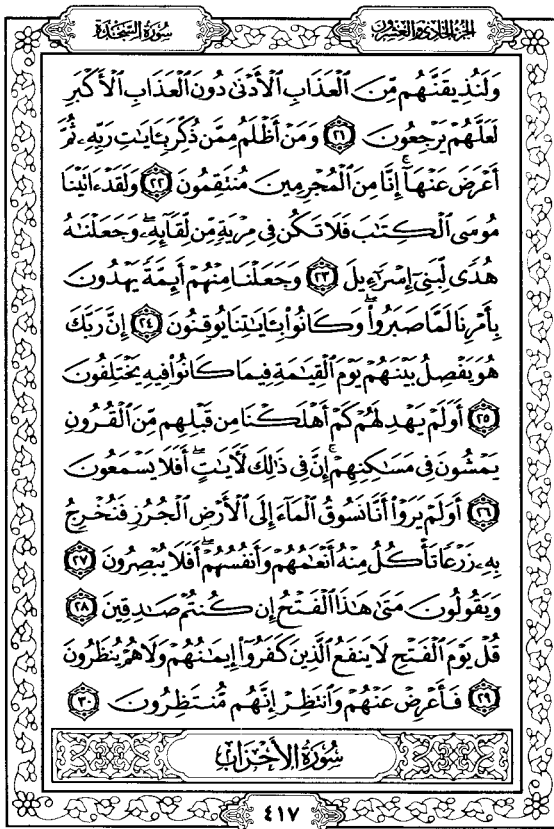 الجزء الحادي والعشرون سُورَةُ السَّجْدَةِ
وَلَنُذِيقَنَّهُم مِّنَ الْعَذَابِ الْأَدْنَىٰ دُونَ الْعَذَابِ الْأَكْبَرِ
لَعَلَّهُمْ يَرْجِعُونَ ﴿٢١﴾ وَمَنْ أَظْلَمُ مِمَّن ذُكِّرَ بِـَٔايَٰتِ رَبِّهِۦ ثُمَّ
أَعْرَضَ عَنْهَآ ۚ إِنَّا مِنَ الْمُجْرِمِينَ مُنتَقِمُونَ ﴿٢٢﴾ وَلَقَدْ ءَاتَيْنَا
مُوسَى الْكِتَٰبَ فَلَا تَكُن فِى مِرْيَةٍ مِّن لِّقَآئِهِۦ ۖ وَجَعَلْنَٰهُ
هُدًى لِّبَنِىٓ إِسْرَٰٓءِيلَ ﴿٢٣﴾ وَجَعَلْنَا مِنْهُمْ أَئِمَّةً يَهْدُونَ
بِأَمْرِنَا لَمَّا صَبَرُوا۟ ۖ وَكَانُوا۟ بِـَٔايَٰتِنَا يُوقِنُونَ ﴿٢٤﴾ إِنَّ رَبَّكَ
هُوَ يَفْصِلُ بَيْنَهُمْ يَوْمَ الْقِيَٰمَةِ فِيمَا كَانُوا۟ فِيهِ يَخْتَلِفُونَ
﴿٢٥﴾ أَوَلَمْ يَهْدِ لَهُمْ كَمْ أَهْلَكْنَا مِن قَبْلِهِم مِّنَ الْقُرُونِ
يَمْشُونَ فِى مَسَٰكِنِهِمْ ۚ إِنَّ فِى ذَٰلِكَ لَـَٔايَٰتٍ ۖ أَفَلَا يَسْمَعُونَ
﴿٢٦﴾ أَوَلَمْ يَرَوْا۟ أَنَّا نَسُوقُ الْمَآءَ إِلَى الْأَرْضِ الْجُرُزِ فَنُخْرِجُ
بِهِۦ زَرْعًا تَأْكُلُ مِنْهُ أَنْعَٰمُهُمْ وَأَنفُسُهُمْ ۖ أَفَلَا يُبْصِرُونَ ﴿٢٧﴾
وَيَقُولُونَ مَتَىٰ هَٰذَا الْفَتْحُ إِن كُنتُمْ صَٰدِقِينَ ﴿٢٨﴾
قُلْ يَوْمَ الْفَتْحِ لَا يَنفَعُ الَّذِينَ كَفَرُوٓا۟ إِيمَٰنُهُمْ وَلَا هُمْ يُنظَرُونَ
﴿٢٩﴾ فَأَعْرِضْ عَنْهُمْ وَانتَظِرْ إِنَّهُم مُّنتَظِرُونَ ﴿٣٠﴾
سُورَةُ الْأَحْزَابِ
٤١٧